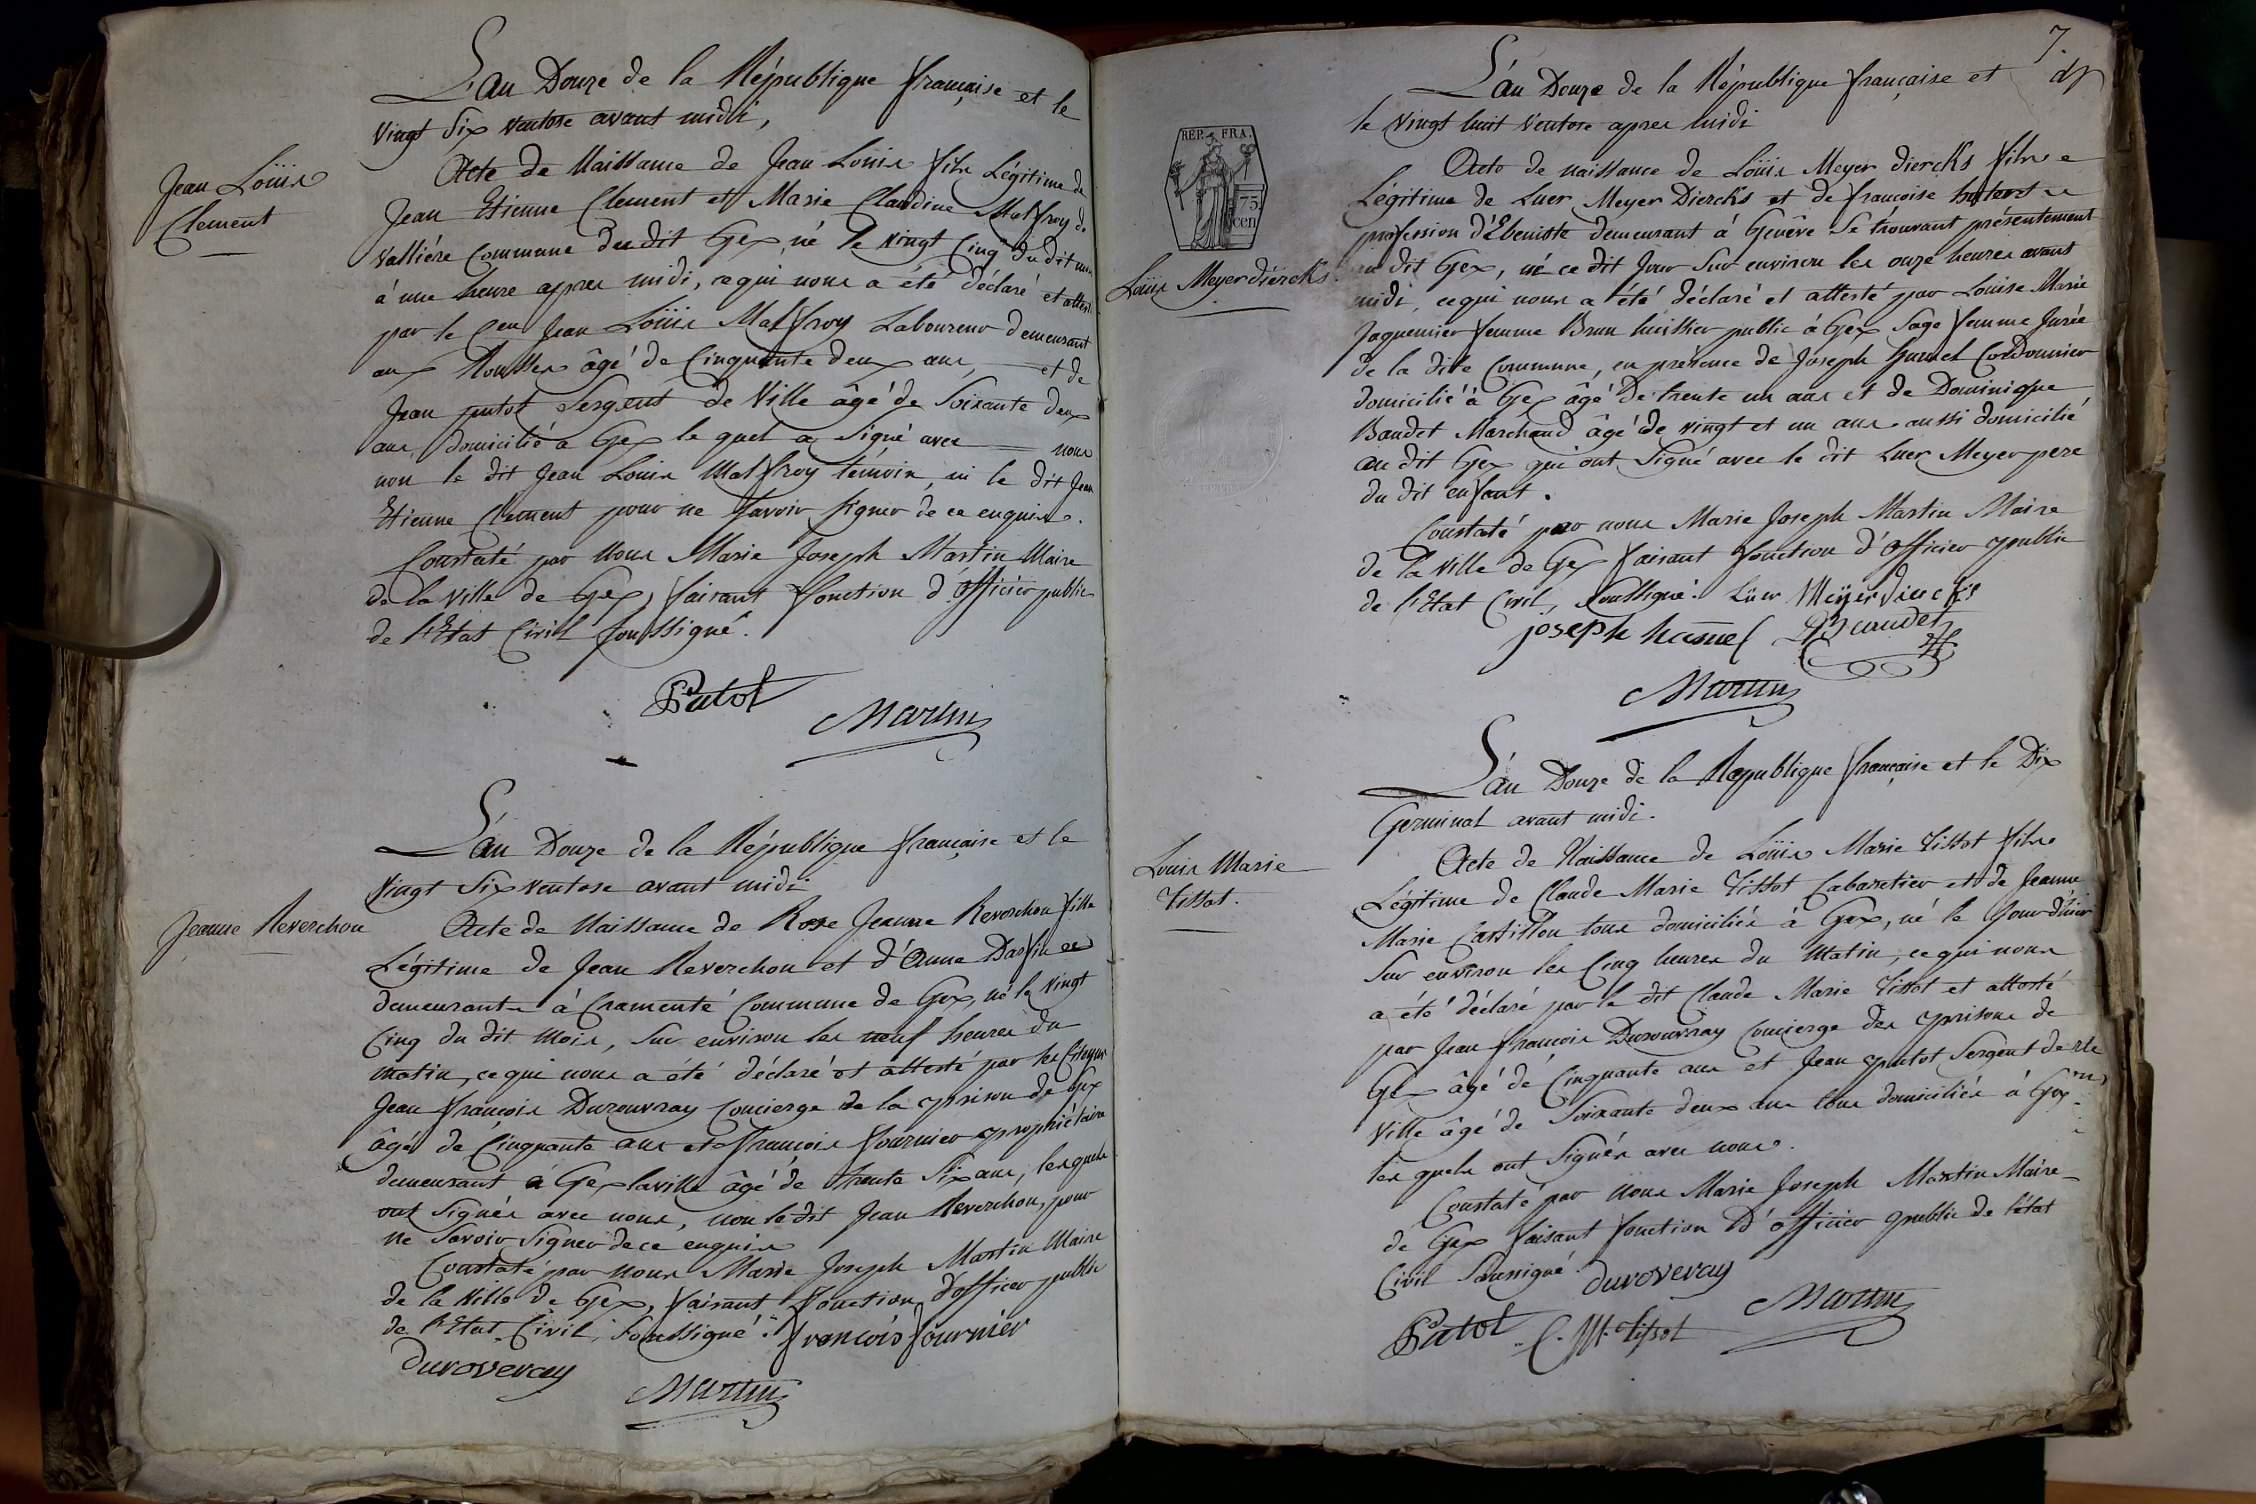 L'an Douze de la République française et le
vingt Six ventose avant midi,
Jean Loüis
Clement
Acte de Naissance de Jean Louis fils Légitime de
Jean Etienne Clement et Marie Claudine Malfroy de
valliére Commune du dit Gex né le vingt Cinq du dit mois
à une heure apres midi, ce qui nous a été déclaré et attesté
par le Cen Jean Loüis Malfroy Laboureur demeurant
aux âgé de Cinquante deux ans, et de
Jean putot Sergent de Ville âgé de Soixante deux
ans, domicilié a Gex le quel a Signé avec nous
non le dit Jean Louis Malfroy témoin, ni le dit Jean
Etienne Clement pour ne savoir signer de ce enquis.
Constaté par Nous Marie Joseph Martin Maire
de la Ville de Gex, faisant fonction d'officier public
de l'Etat Civil soussigné.
Putot
Martin
L'an Douze de la République française et le
Vingt Six ventose avant midi
Jeanne Reverchon
Acte de Naissance de Rose Jeanne Reverchon fille
Légitime de Jean Reverchon et d'Anne Dasfin
demeurants à Cramenté Commune de Gex, né le vingt
Cinq du dit Mois, Sur environ les neuf heures du
matin, ce qui nous a été déclaré et attesté par les Citoyens
Jean françois Durouvray Concierge de la prison de Gex
âgé de Cinquante ans et françois fournier propriétaire
demeurant à Gex la ville âgé de trente Six ans, lesquels
ont Signés avec nous, non le dit Jean Reverchon, pour
ne Savoir Signer de ce enquis
Constaté par Nous Marie Joseph Martin Maire
de la Ville de Gex, faisant fonction d'officier public
de l'Etat Civil, Soussigné. françois fournier
duroveray
Martin
7.
L'an Douze de la République française et
le vingt huit Ventose apres midi
REP. FRA.
75
cen
Loüis Meyer diercks
Acte de naissance de Loüis Meyer diercks fils
Légitime de Luer Meyer Diercks et de françoise
profession d'Ebeniste demeurant à Genêve Se trouvant présentement
au dit Gex, né ce dit Jour Sur environ les onze heures avant
midi, ce qui nous a été déclaré et attesté par Louise Marie
Jaquemier femme Brun huissier public à Gex Sage femme Jurée
de la dite Commune, en présence de Joseph hamel Cordonnier
domicilié à Gex âgé de trente un ans et de Dominique
Baudet Marchand âgé de vingt et un ans aussi domicilié
au dit Gex qui ont Signé avec le dit Luer Meyer pere
du dit enfant.
Constaté par nous Marie Joseph Martin Maire
de la Ville de Gex faisant fonction d'officier public
de l'Etat Civil, soussigné. Lüer Meÿer diercks
joseph hamel DBaudet
Martin
L'an Douze de la République française et le Dix
Germinal avant midi.
Louis Marie
Tissot.
Acte de Naissance de Loüis Marie Tissot fils
Légitime de Claude Marie Tissot Cabaretier et de Jeanne
Marie Castillon tous domiciliés à Gex, né le Jour d'hier
Sur environ les Cinq heures du Matin, ce qui nous
a été déclaré par le dit Claude Marie Tissot et attesté
par Jean françois Durouvray Concierge des prisons de
Gex âgé de Cinquante ans et Jean putot Sergent de
Ville âgé de Soixante deux ans tous domiciliés à Gex
les quels ont Signés avec nous.
Constaté par Nous Marie Joseph Martin Maire
de Gex faisant fonction d'officier public de l'état
Civil Soussigné duroveray
Putot C. M. Tissot Martin